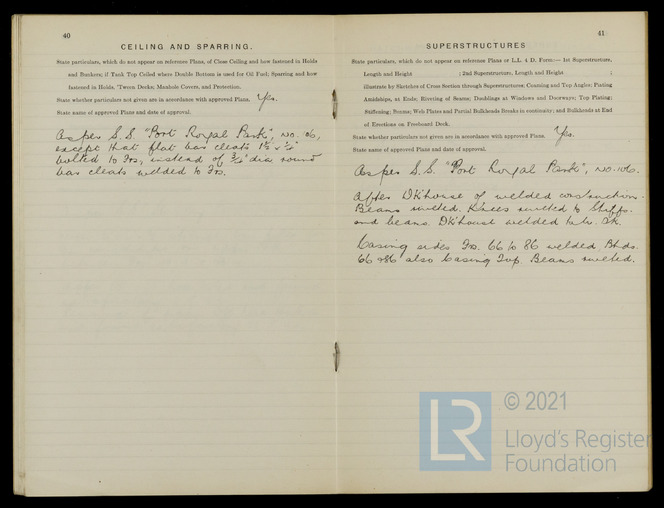 40
CEILING AND SPARRING.
State particulars, which do not appear on reference Plans, of Close Ceiling and how fastened in Holds
and Bunkers; if Tank Top Ceiled where Double Bottom is used for Oil Fuel; Sparring and how
fastened in Holds, 'Tween Decks; Manhole Covers, and Protection.
State whether particulars not given are in accordance with approved Plans. Yes.
State name of approved Plans and date of approval.
As per S.S. "Port Royal Park", No. 106,
except that flat bar cleats 1½" x ¼"
bolted to Frs, instead of ¾" dia round
bar cleats welded to Frs.
41
SUPERSTRUCTURES
State particulars, which do not appear on reference Plans or L.L. 4 D. Form:— 1st Superstructure,
Length and Height ; 2nd Superstructure, Length and Height ;
illustrate by Sketches of Cross Section through Superstructures; Coaming and Top Angles; Plating
Amidships, at Ends; Riveting of Seams; Doublings at Windows and Doorways; Top Plating;
Stiffening; Beams; Web Plates and Partial Bulkheads Breaks in continuity; and Bulkheads at End
of Erections on Freeboard Deck.
State whether particulars not given are in accordance with approved Plans. Yes.
State name of approved Plans and date of approval.
As per S.S. "Port Royal Park", No. 106.
After Dkhouse of welded construction.
Beams riveted. Knees riveted to Stiffs.
and beams. Dkhouse welded to Dk.
Casing sides Frs. 66 to 86 welded Bhds.
66 & 86 also Casing Top. Beams riveted.
LR
© 2021
Lloyd's Register
Foundation